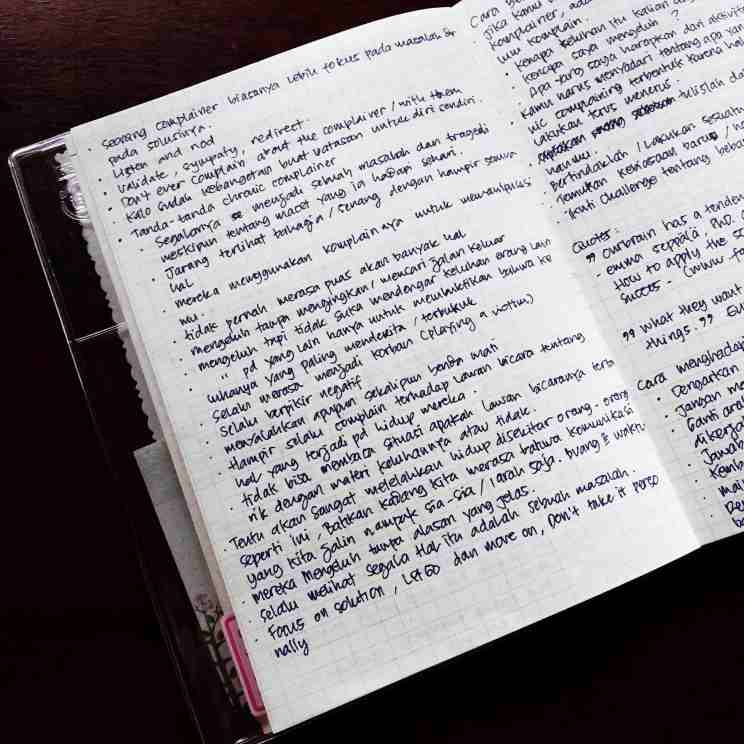 • Seorang complainer biasanya lebih fokus pada masalah dr
pada solusinya.
• Listen and nod
• Validate, sympaty, redirect.
• Don't ever complain about the complainer / with them
• Kalo sudah kebangetan buat batasan untuk diri sendiri.
• Tanda-tanda chronic complainer
• Segalanya menjadi sebuah masalah dan tragedi
meskipun tentang macet yang ia hadapi sehari.
• Jarang terlihat bahagia / senang dengan hampir semua
hal
• mereka menggunakan komplainnya untuk memanipulasi
mu.
• tidak pernah merasa puas akan banyak hal
• mengeluh tanpa menginginkan / mencari jalan keluar
• mengeluh tapi tidak suka mendengar keluhan orang lain
• " pd yang lain hanya untuk membuktikan bahwa ke
luhannya yang paling menderita / terburuk
• Selalu merasa menjadi korban (playing a victim)
• Selalu berpikir negatif
• menyalahkan apapun sekalipun benda mati
• Hampir selalu complain terhadap lawan bicara tentang
hal yang terjadi pd hidup mereka.
• tidak bisa membaca situasi apakah lawan bicaranya terta
rik dengan materi keluhannya atau tidak.
• Tentu akan sangat melelahkan hidup disekitar orang-orang
seperti ini, Bahkan kadang kita merasa bahwa komunikasi
yang kita jalin nampak sia-sia / larah saja. buang² waktu
• mereka mengeluh tanpa alasan yang jelas.
• Selalu melihat segala hal itu adalah sebuah masalah.
• Focus on solution, Let Go dan move on, Don't take it perso
nally
Cara
jika kamu
komplainer, ada
mu komplain.
• Kenapa keluhan itu kalian
• Kenapa saya mengeluh?
• apa yang saya harapkan dari aktivit
• Kamu harus menyadari tentang apa yan
nic complaining terbentuk karena hal
lakukan terus menerus.
tulislah da
hanmu.
• Bertindaklah / Lakukan sesuatu
• Temukan kebiasaan baru / h
• Ikuti Challenge tentang beba
Quotes:
" Our brain has a tenden
- emma seppala, PhD.
How to apply the sc
success - (www.fa
" What they want
things. "
Cara menghadapi
• Dengarkan
• Jangan me
• Ganti ara
dikerja
• Jawab
• Kemba
mai
• Der